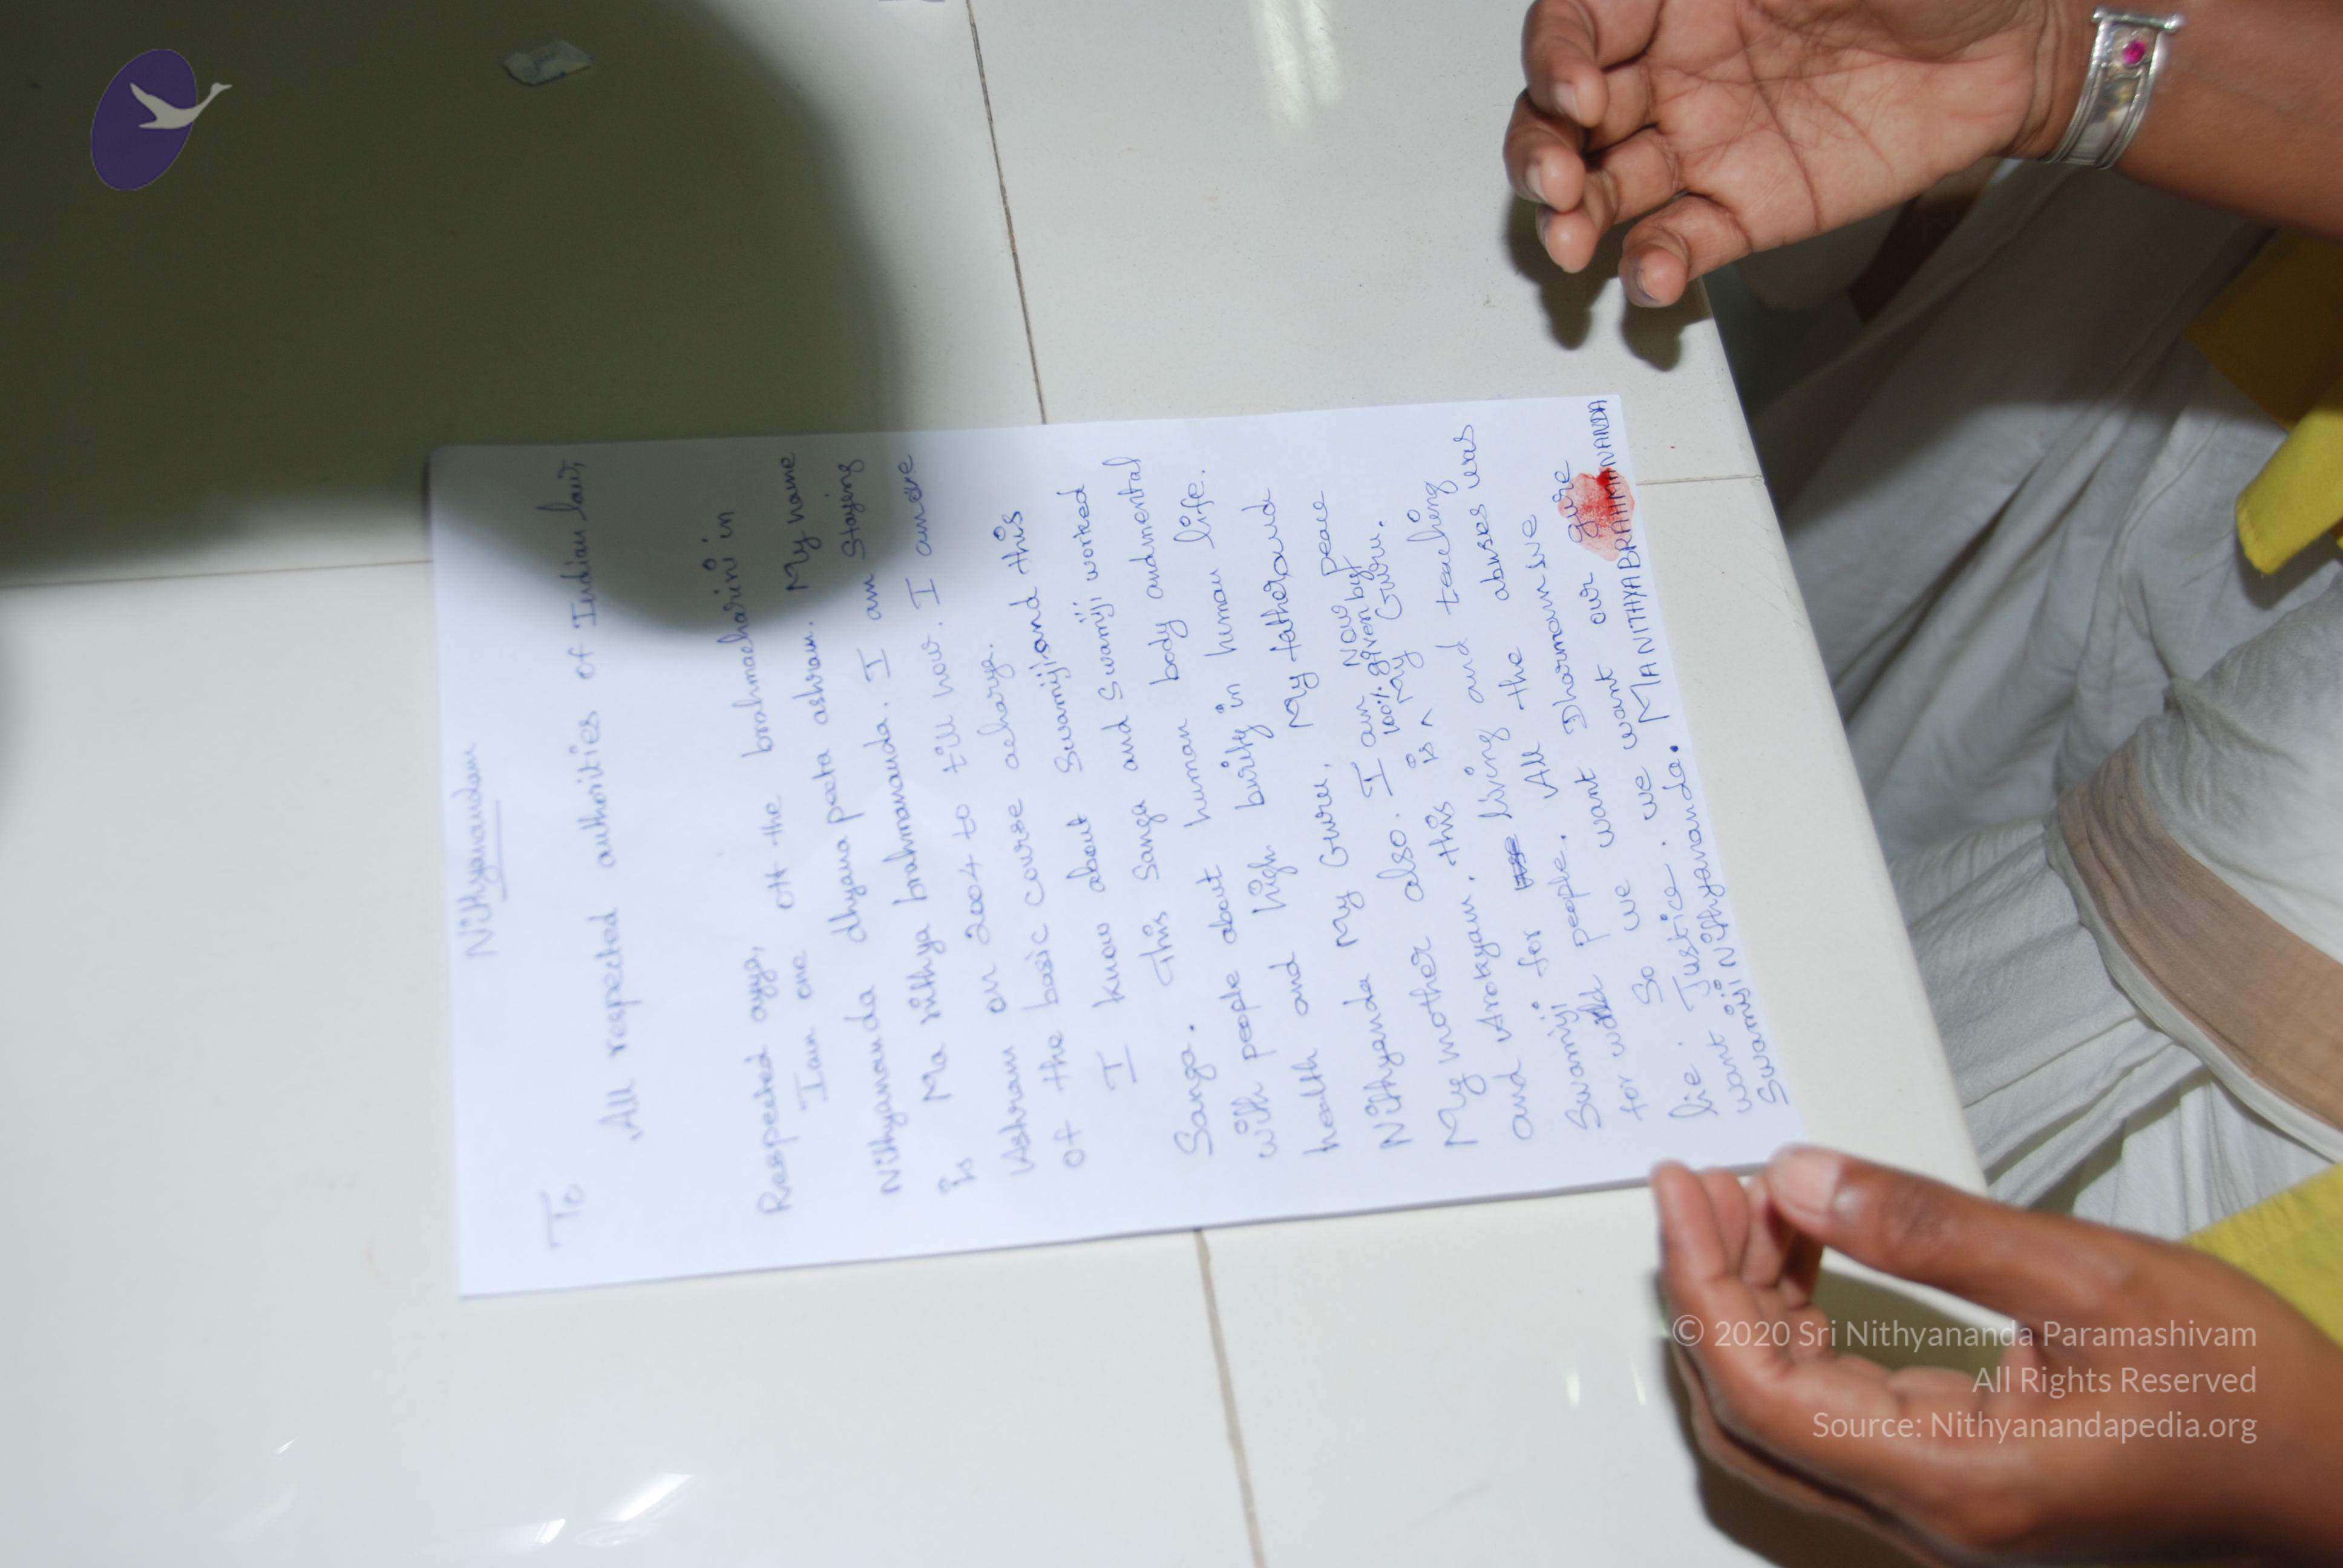 Nithyanandam
To
All respected authorities of Indian law,
Respected ayya,
I am one off the brahmacharini in
Nithyananda dhyana peeta ashram. My name
is Ma nithya brahmananda. I am Staying
Ashram on 2004 to till now. I am one
of the basic course acharya.
I know about Swamiji and this
Sanga. This Sanga and Swamiji worked
with people about human body and mental
health and high purity in human life.
Nithyanda My Guru, My father and
My mother also. I am Now peace
and Arokyam. this is 100% given by My Guru.
Swamiji for living and teaching
for people. All the abuses was
lie. So we want Dharmam we
want Justice. we want our gure
Swamiji Nithyananda. MA NITHYA BRAHMANANDA
© 2020 Sri Nithyananda Paramashivam
All Rights Reserved
Source: Nithyanandapedia.org